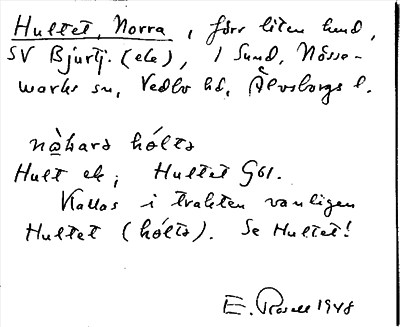 Hultet, Norra, förr liten lund,
SV Bjurtj. (ek), i Sund, Nösse-
marks sn, Vedbo hd, Älvsborgs l.
nòhara hólta
Hult ek; Hultet Göl.
Kallas i trakten vanligen
Hultet (hólta). Se Hultet!
E. Rosell 1948